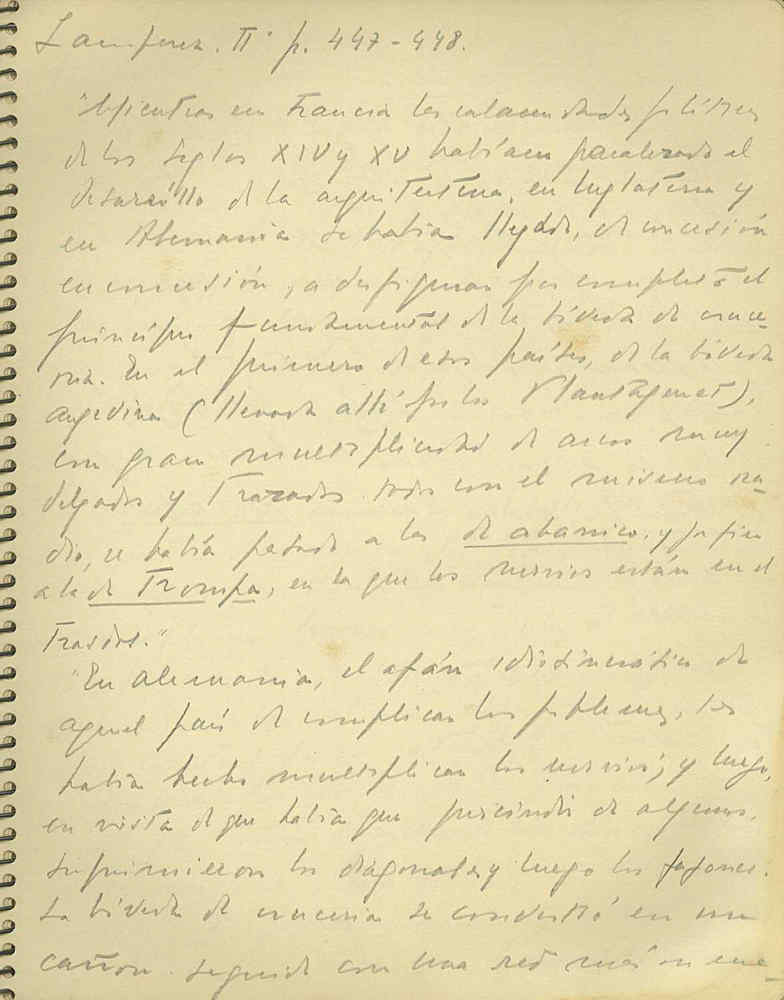 Lamperez. II. p. 447-448.
"Mientras en Francia las calamidades políticas
de los siglos XIV y XV habían paralizado el
desarrollo de la arquitectura, en Inglaterra y
en Alemania se había llegado, de concesión
en concesión, a desfigurar por completo el
principio fundamental de la bóveda de cruce-
ría. En el primero de esos países, de la bóveda
angevina (llevada allí por los Plantagenet),
con gran multiplicidad de arcos muy
delgados y trazados todos con el mismo ra-
dio, se había pasado a las de abanico, y por fin
a la de trompa, en la que los nervios están en el
trasdos."
"En Alemania, el afán idiosincrático de
aquel país de complicar los problemas, les
había hecho multiplicar los nervios; y luego,
en vista de que había que prescindir de algunos,
suprimieron los diagonales y luego los fajones.
La bóveda de crucería se convirtió en un
cañon seguido con una red más o me-